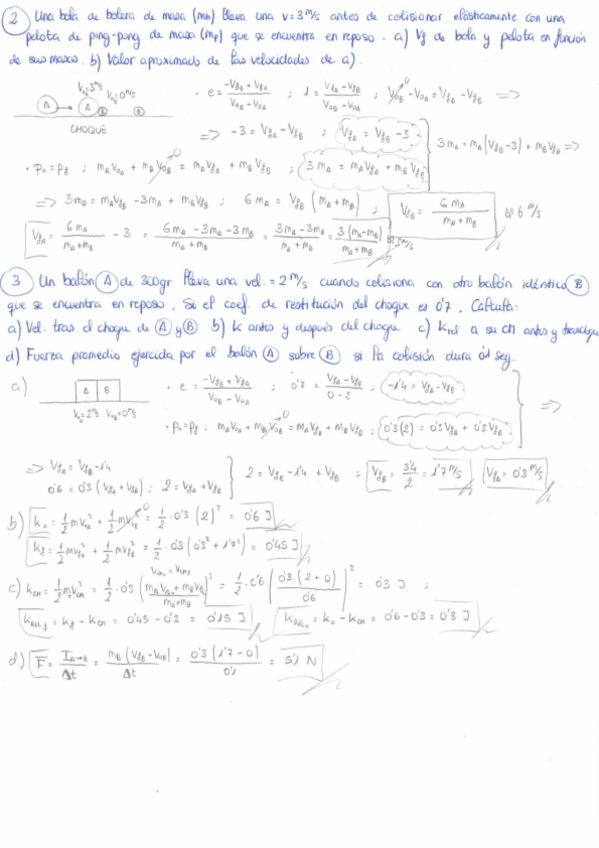 2 Una bola de bolera de masa (mb) lleva una v = 3 m/s antes de colisionar elásticamente con una
pelota de ping-pong de masa (mp) que se encuentra en reposo. a) Vf de bola y pelota en función
de sus masas. b) Valor aproximado de las velocidades de a).
A A B B CHOQUE
• e = (-VfB + VfA) / (VoB - VoA) ; 1 = (VfA - VfB) / (VoB - VoA) ; VoB - VoA = VfA - VfB =>
=> -3 = VfA - VfB ; VfA = VfB - 3
• po = pf ; mA VoA + mB VoB = mA VfA + mB VfB ; 3 mA = mA VfA + mB VfB
3 mA = mA (VfB - 3) + mB VfB =>
=> 3mA = mA VfB - 3mA + mB VfB ; 6 mA = VfB (mA + mB) ; VfB = 6 mA / (mA + mB) ≈ 6 m/s
VfA = 6 mA / (mA + mB) - 3 = (6mA - 3mA - 3mB) / (mA + mB) = (3mA - 3mB) / (mA + mB) = 3(mA - mB) / (mA + mB) ≈ 3 m/s
3 Un balón A de 300gr lleva una vel. = 2 m/s cuando colisiona con otro balón idéntico B
que se encuentra en reposo. Si el coef. de restitución del choque es 0'7, Calcula:
a) Vel. tras el choque de A y B b) k antes y después del choque c) krel a su CM antes y tras choque
d) Fuerza promedio ejercida por el balón A sobre B si la colisión dura 0'1 seg.
a) A B • e = (-VfB + VfA) / (VoB - VoA) ; 0'7 = (VfA - VfB) / (0 - 2) ; -1'4 = VfA - VfB
• po = pf ; mA VoA + mB VoB = mA VfA + mB VfB ; 0'3(2) = 0'3 VfA + 0'3 VfB =>
=> VfA = VfB - 1'4
0'6 = 0'3 (VfA + VfB) ; 2 = VfA + VfB
2 = VfB - 1'4 + VfB ; VfB = 3'4 / 2 = 1'7 m/s VfA = 0'3 m/s
b) ko = 1/2 m VoA² + 1/2 m VoB² = 1/2 · 0'3 (2)² = 0'6 J
kf = 1/2 m VfA² + 1/2 m VfB² = 1/2 · 0'3 (0'3² + 1'7²) = 0'45 J
c) kCM = 1/2 m VCM² = 1/2 · 0'3 ((mA VoA + mB VoB) / (mA + mB))² = 1/2 · 0'6 (0'3 (2 + 0) / 0'6)² = 0'3 J ;
kREL f = kf - kCM = 0'45 - 0'3 = 0'15 J kREL o = ko - kCM = 0'6 - 0'3 = 0'3 J
d) F = I A→B / Δt = mB (VfB - VoB) / Δt = 0'3 (1'7 - 0) / 0'1 = 5'1 N